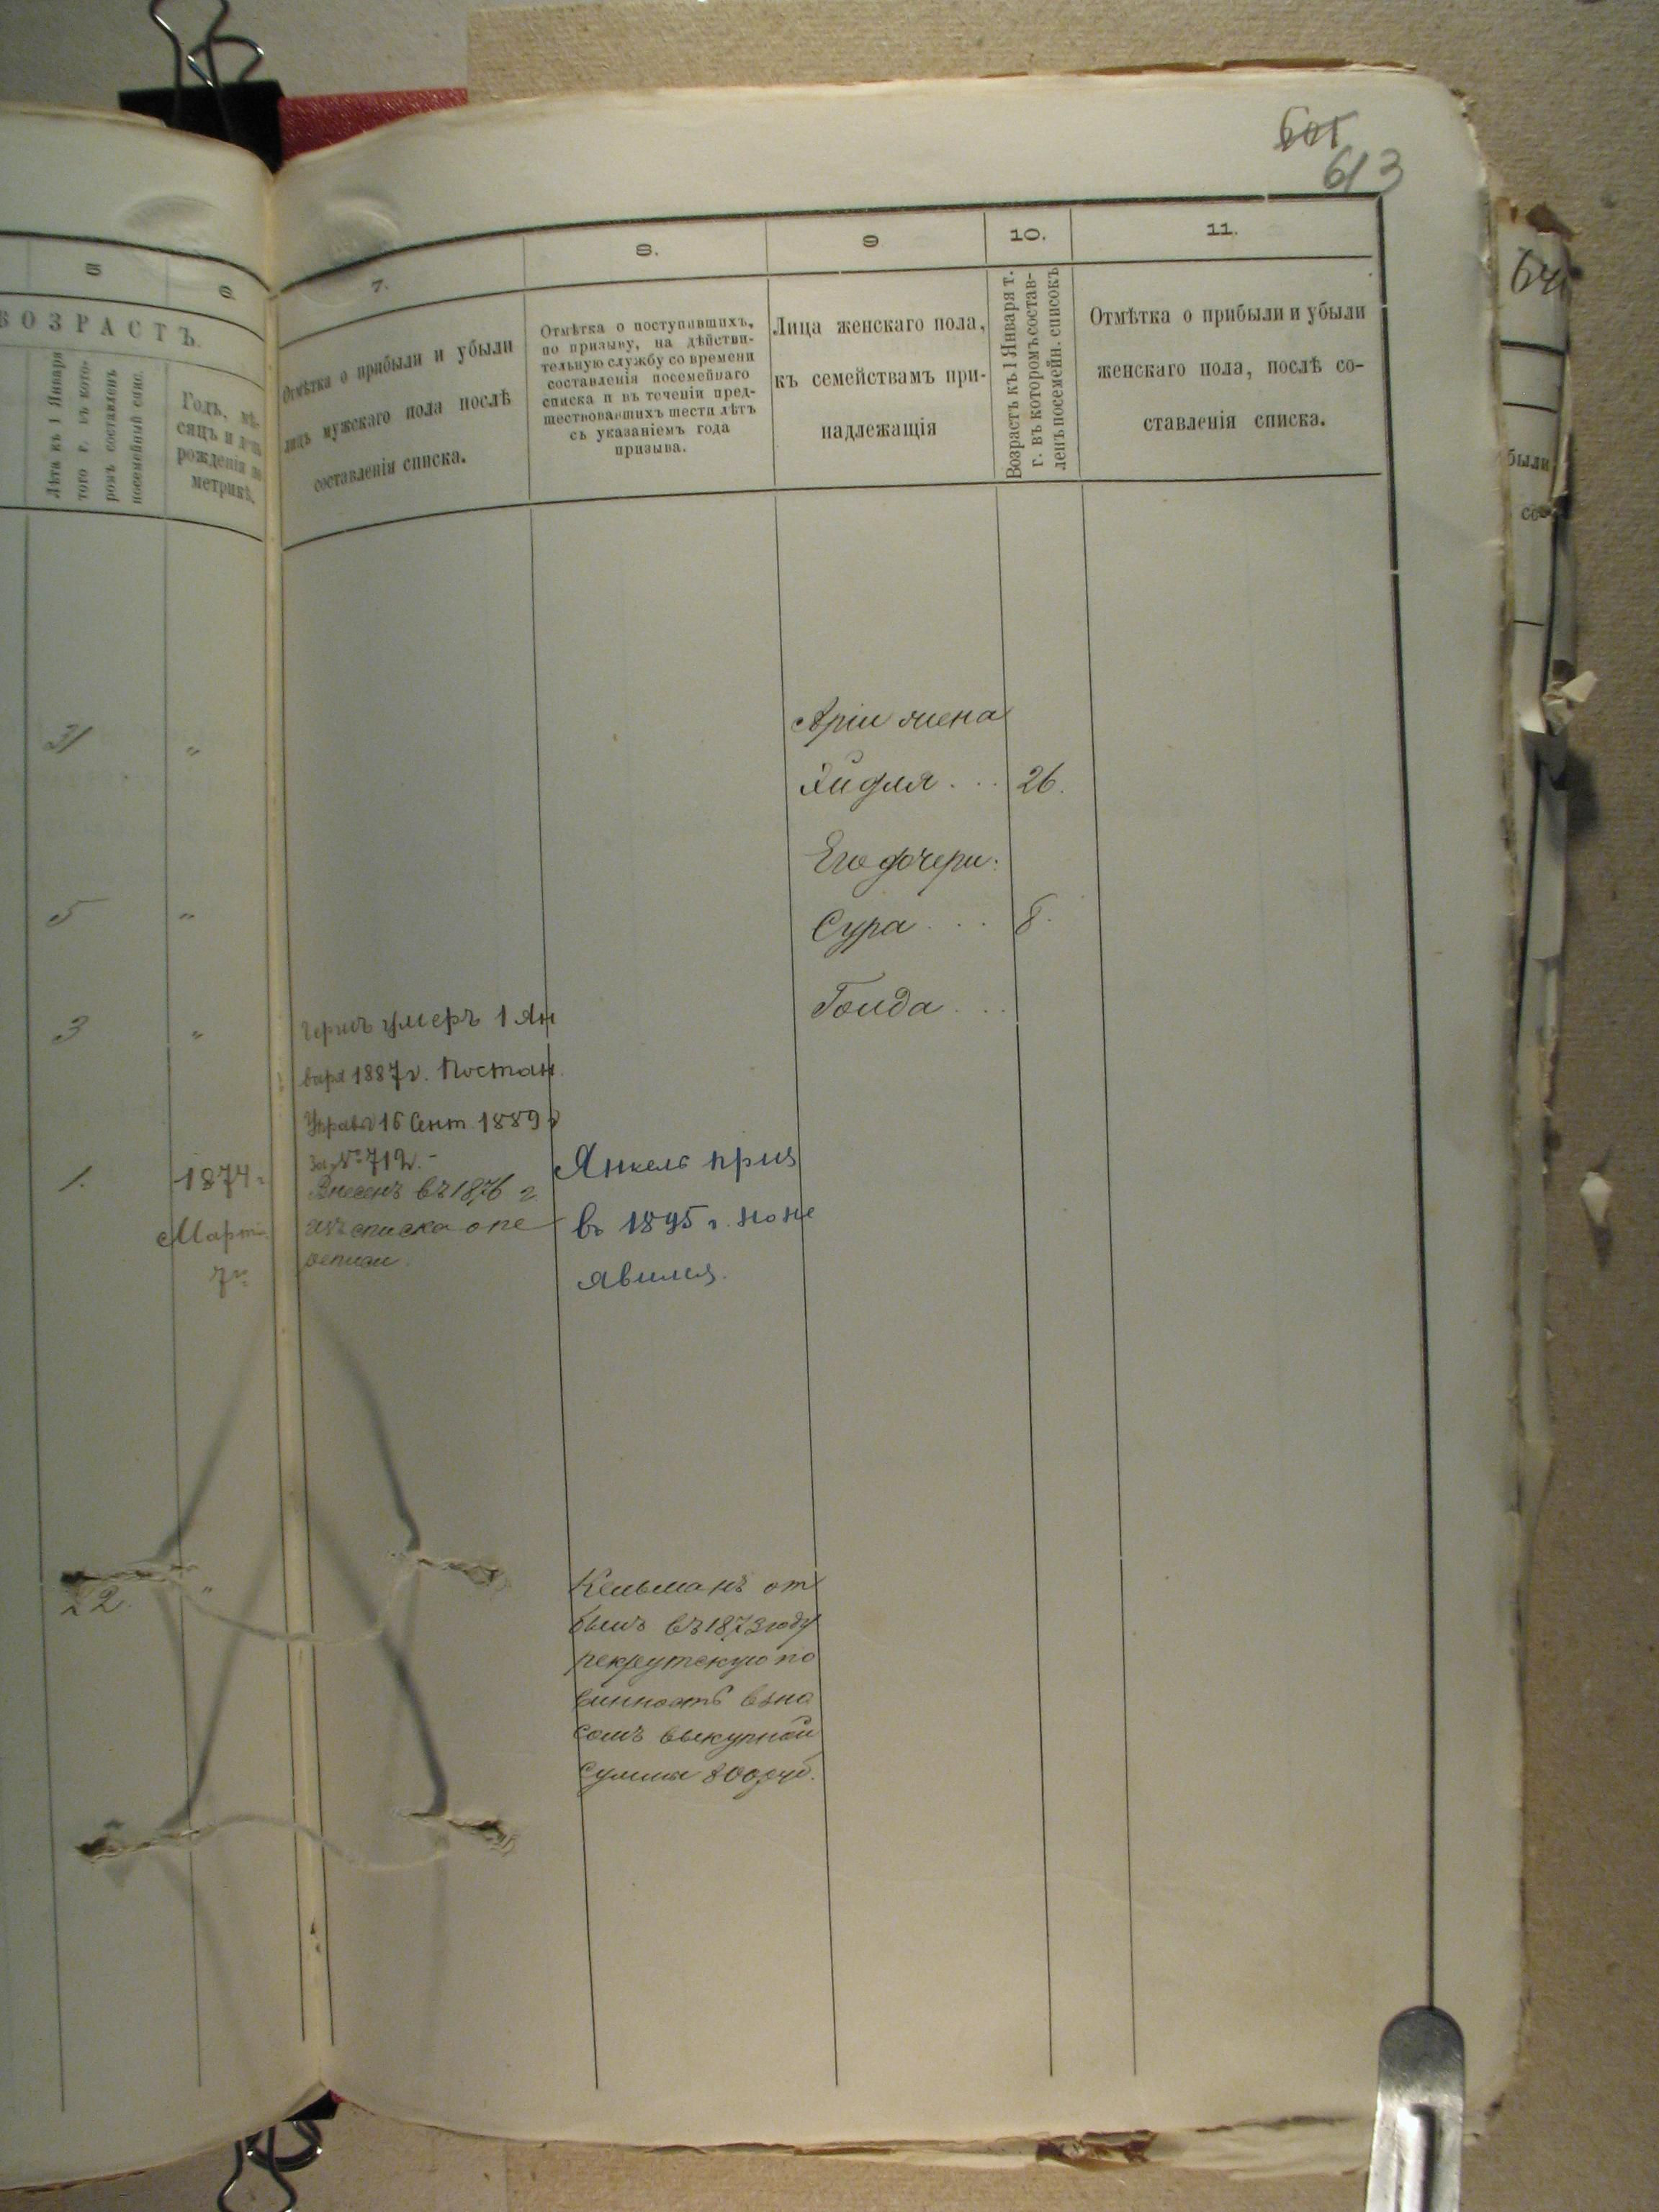 601
613
5
6.
7.
8.
9
10.
11.
ВОЗРАСТЪ.
Лѣта къ 1 Января
того г. въ кото-
ромъ составленъ
посемейный спис.
Годъ, мѣ-
сяцъ и день
рожденія по
метрикѣ.
Отмѣтка о прибыли и убыли
лицъ мужскаго пола послѣ
составленія списка.
Отмѣтка о поступавшихъ,
по призыву, на дѣйстви-
тельную службу со времени
составленія посемейнаго
списка и въ теченіи пред-
шествовавшихъ шести лѣтъ
съ указаніемъ года
призыва.
Лица женскаго пола,
къ семействамъ при-
надлежащія
Возрастъ къ 1 Января т.
г. въ которомъ состав-
ленъ посемейн. списокъ
Отмѣтка о прибыли и убыли
женскаго пола, послѣ со-
ставленія списка.
были
со-
31 "
Арiи жена
26.
Его дочери:
5 "
Сура . . . 8.
3 "
Голда . . .
умеръ 1 Ян
варя 1887 г. Постан.
Управы 16 Сент. 1889 г
за № 712.-
1. 1874 г.
Марта
7 г.
Внесенъ въ 1876 г.
изъ списка о пе
реписи.
Янкель приз
въ 1895 г. но не
явился.
22. "
Кельманъ от
былъ въ 1873 году
рекрутскую по
винность взно
сомъ выкупной
суммы 800 руб.